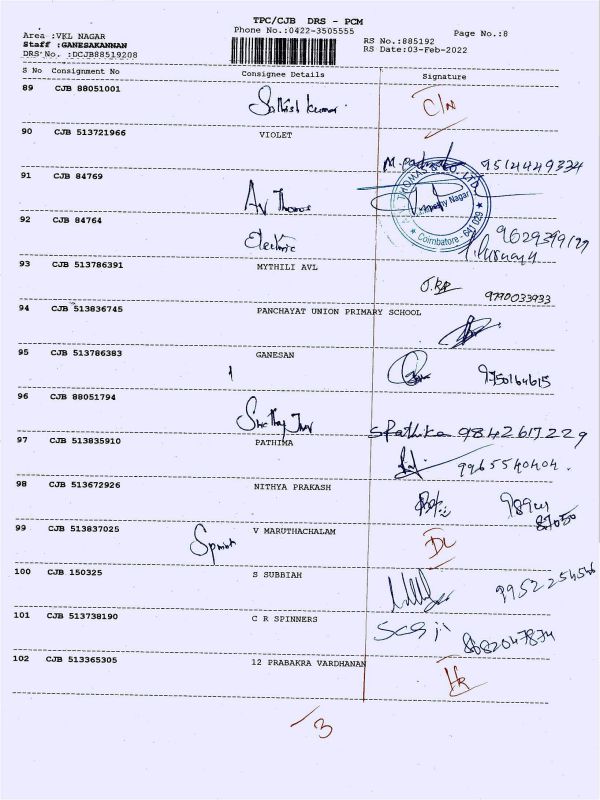 TPC/CJB DRS - PCM
Area :VKL NAGAR Phone No.:0422-3505555 Page No.:8
Staff :GANESAKANNAN RS No.:885192
DRS No. :DCJB88519208 RS Date:03-Feb-2022
S No Consignment No Consignee Details Signature
89 CJB 88051001
Sathish kumar C/N
90 CJB 513721966 VIOLET
9514449334
91 CJB 84769
AV Thomas
THOMAS & CO. LTD.
Nagar
Coimbatore - 641 029
92 CJB 84764
Electric 9629399127
93 CJB 513786391 MYTHILI AVL
9790033933
94 CJB 513836745 PANCHAYAT UNION PRIMARY SCHOOL
95 CJB 513786383 GANESAN
9750164615
96 CJB 88051794
SPathika 9842617229
97 CJB 513835910 PATHIMA
9965540404.
98 CJB 513672926 NITHYA PRAKASH
99 CJB 513837025 V MARUTHACHALAM
DL
100 CJB 150325 S SUBBIAH
9952254546
101 CJB 513738190 C R SPINNERS
102 CJB 513365305 12 PRABAKRA VARDHANAN
3